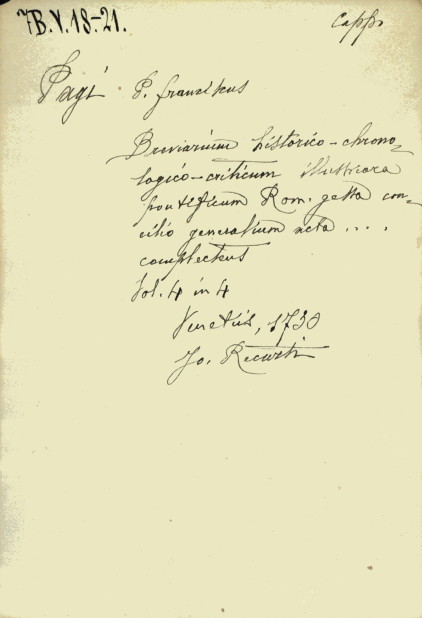 7B.V.18-21.
Capps
Pagi P. Franzikus
Breviarium historico-chrono-
logico-criticum illustriora
pontificum Rom. gesta con-
cilio generalium acta ....
complectus
Vol. 4 in 4
Venetiis, 1730
Jo. Recurti